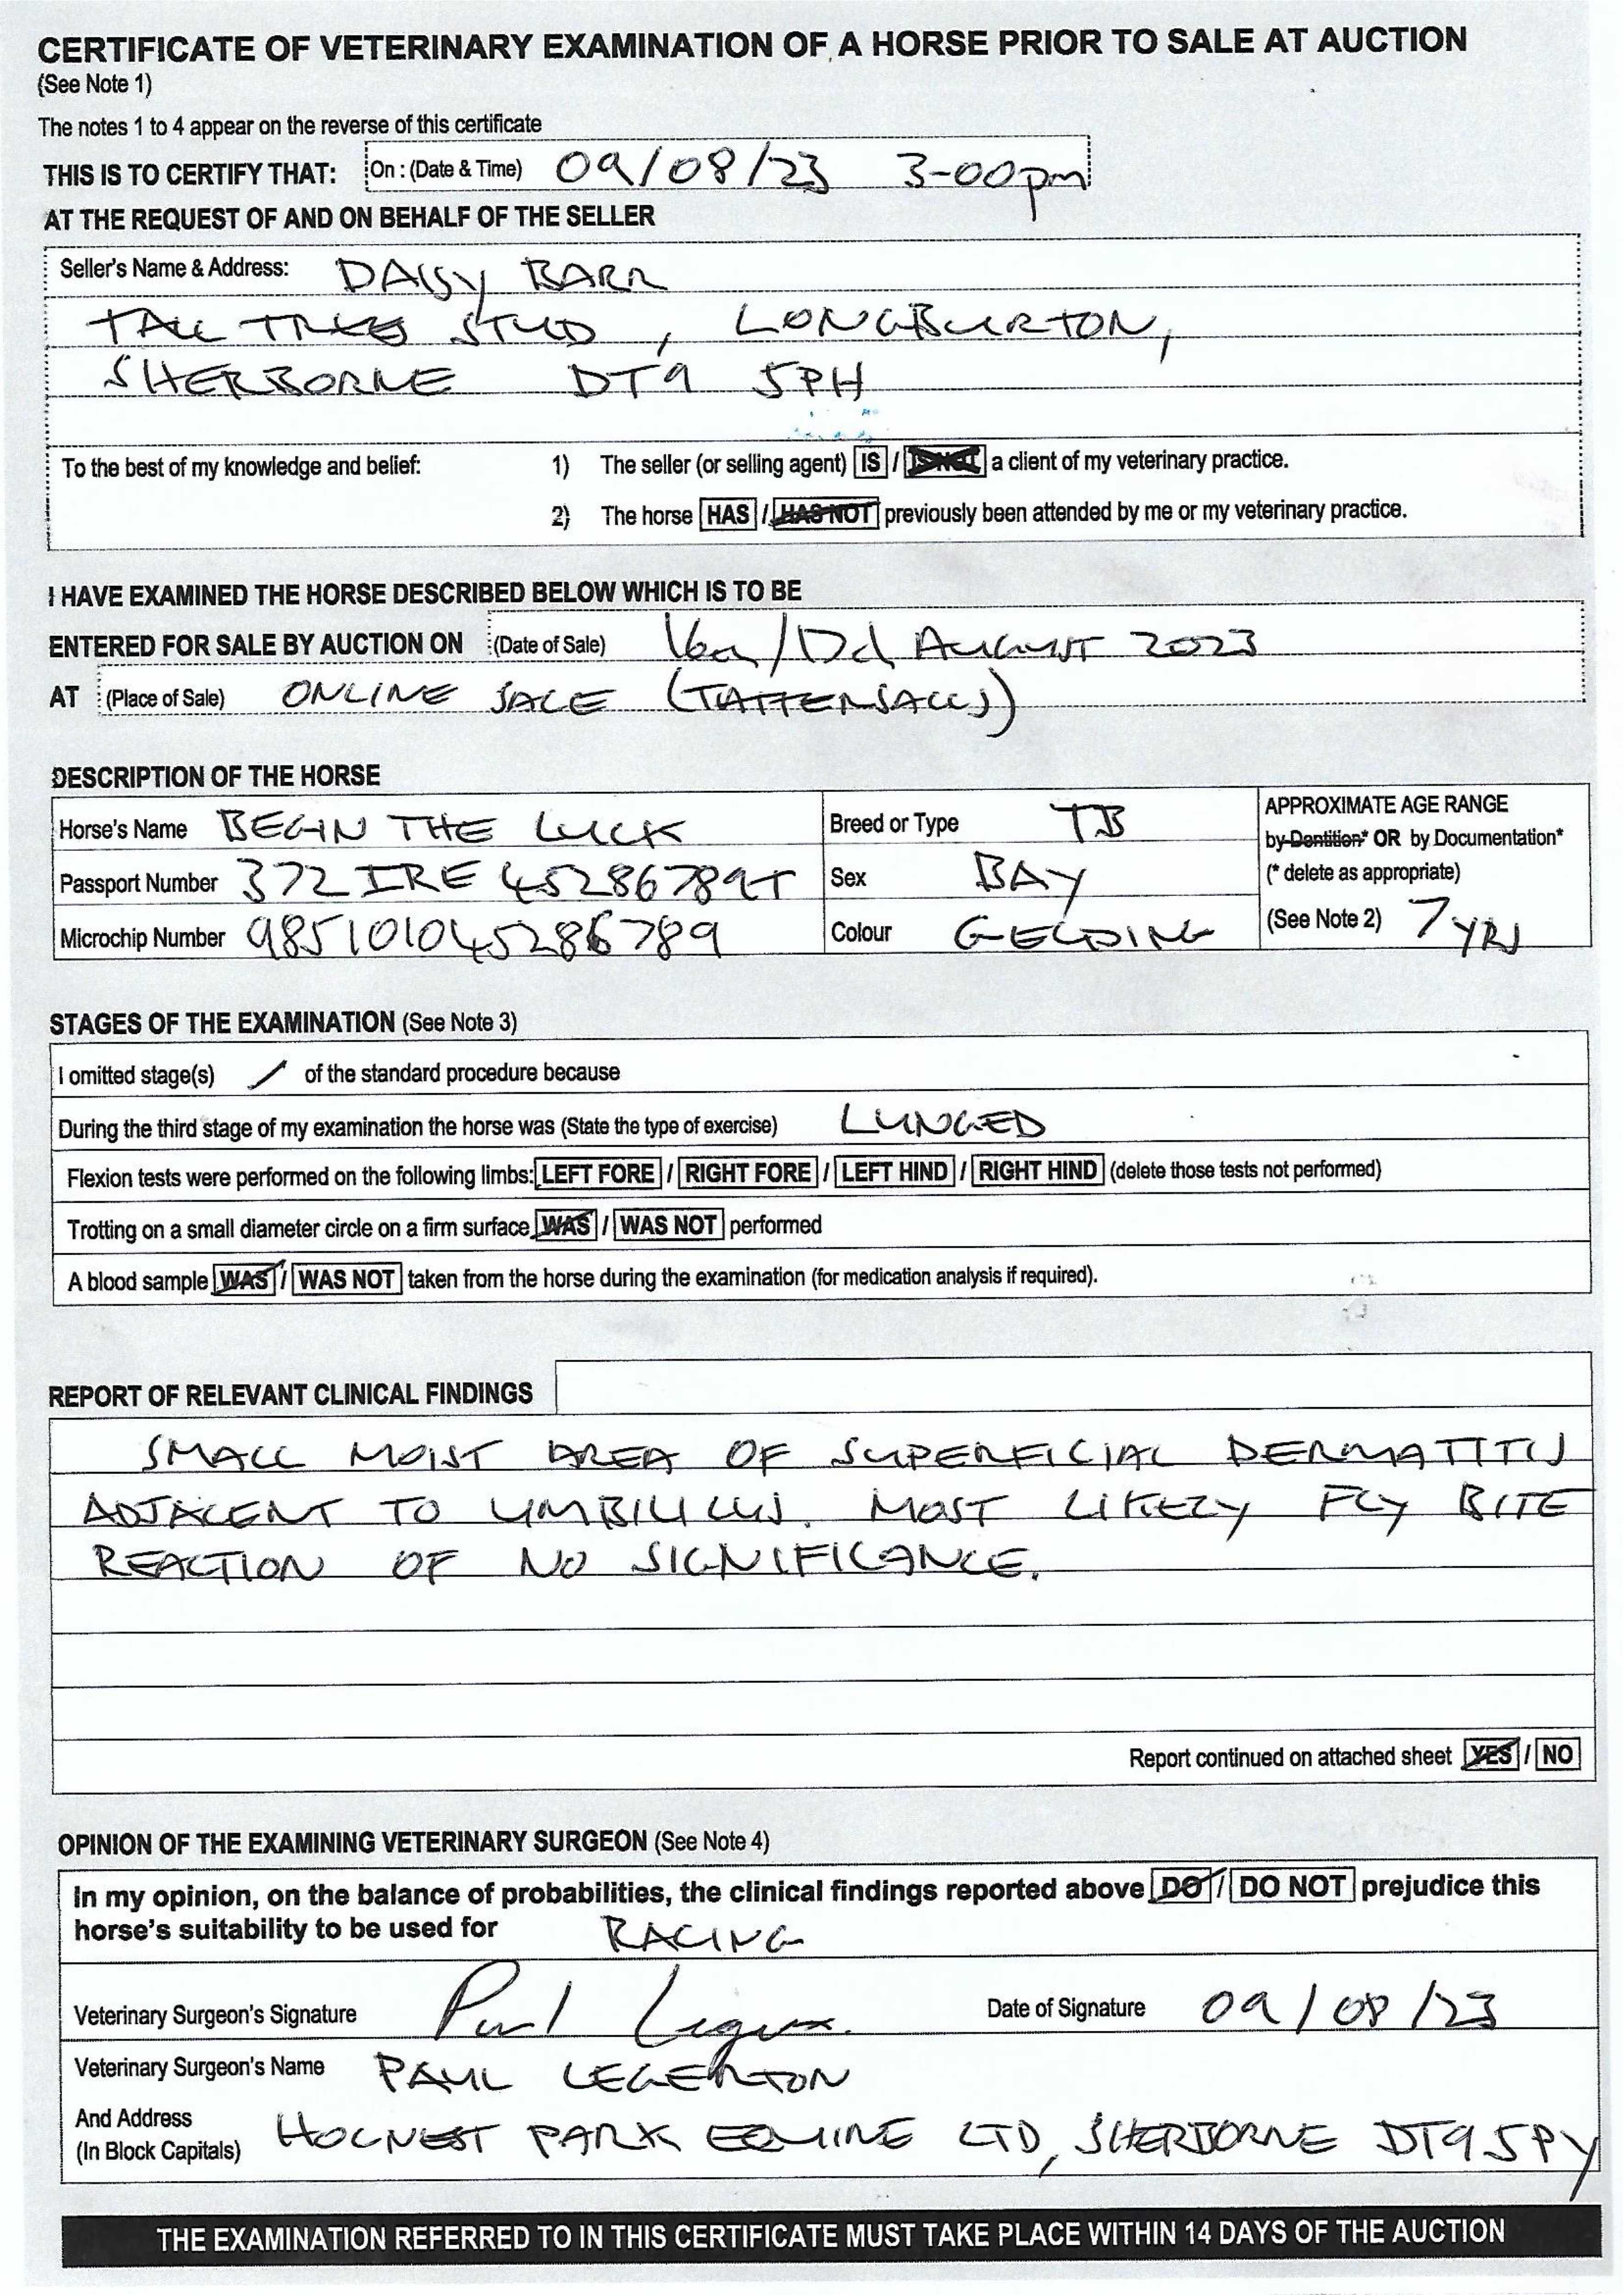 CERTIFICATE OF VETERINARY EXAMINATION OF A HORSE PRIOR TO SALE AT AUCTION
(See Note 1)
The notes 1 to 4 appear on the reverse of this certificate
THIS IS TO CERTIFY THAT: On : (Date & Time) 09/08/23 3-00pm
AT THE REQUEST OF AND ON BEHALF OF THE SELLER
Seller's Name & Address: DAISY BARR
TALL TREES STUD , LONGBURTON,
SHERBORNE DT9 5PH
To the best of my knowledge and belief: 1) The seller (or selling agent) IS / IS NOT a client of my veterinary practice.
2) The horse HAS / HAS NOT previously been attended by me or my veterinary practice.
I HAVE EXAMINED THE HORSE DESCRIBED BELOW WHICH IS TO BE
ENTERED FOR SALE BY AUCTION ON (Date of Sale) AUGUST 2023
AT (Place of Sale) ONLINE SALE (TATTENSALLS)
DESCRIPTION OF THE HORSE
Horse's Name BEGIN THE LUCK Breed or Type TB APPROXIMATE AGE RANGE
by Dentition* OR by Documentation*
Passport Number 372 IRE 45286789T Sex BAY (* delete as appropriate)
Microchip Number 985101045286789 Colour GELDING (See Note 2) 7 YRS
STAGES OF THE EXAMINATION (See Note 3)
I omitted stage(s) / of the standard procedure because
During the third stage of my examination the horse was (State the type of exercise) LUNGED
Flexion tests were performed on the following limbs: LEFT FORE / RIGHT FORE / LEFT HIND / RIGHT HIND (delete those tests not performed)
Trotting on a small diameter circle on a firm surface WAS / WAS NOT performed
A blood sample WAS / WAS NOT taken from the horse during the examination (for medication analysis if required).
REPORT OF RELEVANT CLINICAL FINDINGS
SMALL MOIST AREA OF SUPERFICIAL DERMATITIS
ADJACENT TO UMBILICUS. MOST LIKELY FLY BITE
REACTION OF NO SIGNIFICANCE.
Report continued on attached sheet YES / NO
OPINION OF THE EXAMINING VETERINARY SURGEON (See Note 4)
In my opinion, on the balance of probabilities, the clinical findings reported above DO / DO NOT prejudice this
horse's suitability to be used for RACING
Veterinary Surgeon's Signature Date of Signature 09/08/23
Veterinary Surgeon's Name PAUL LEGERTON
And Address
(In Block Capitals) HOLNEST PARK EQUINE LTD, SHERBORNE DT9 5PY
THE EXAMINATION REFERRED TO IN THIS CERTIFICATE MUST TAKE PLACE WITHIN 14 DAYS OF THE AUCTION